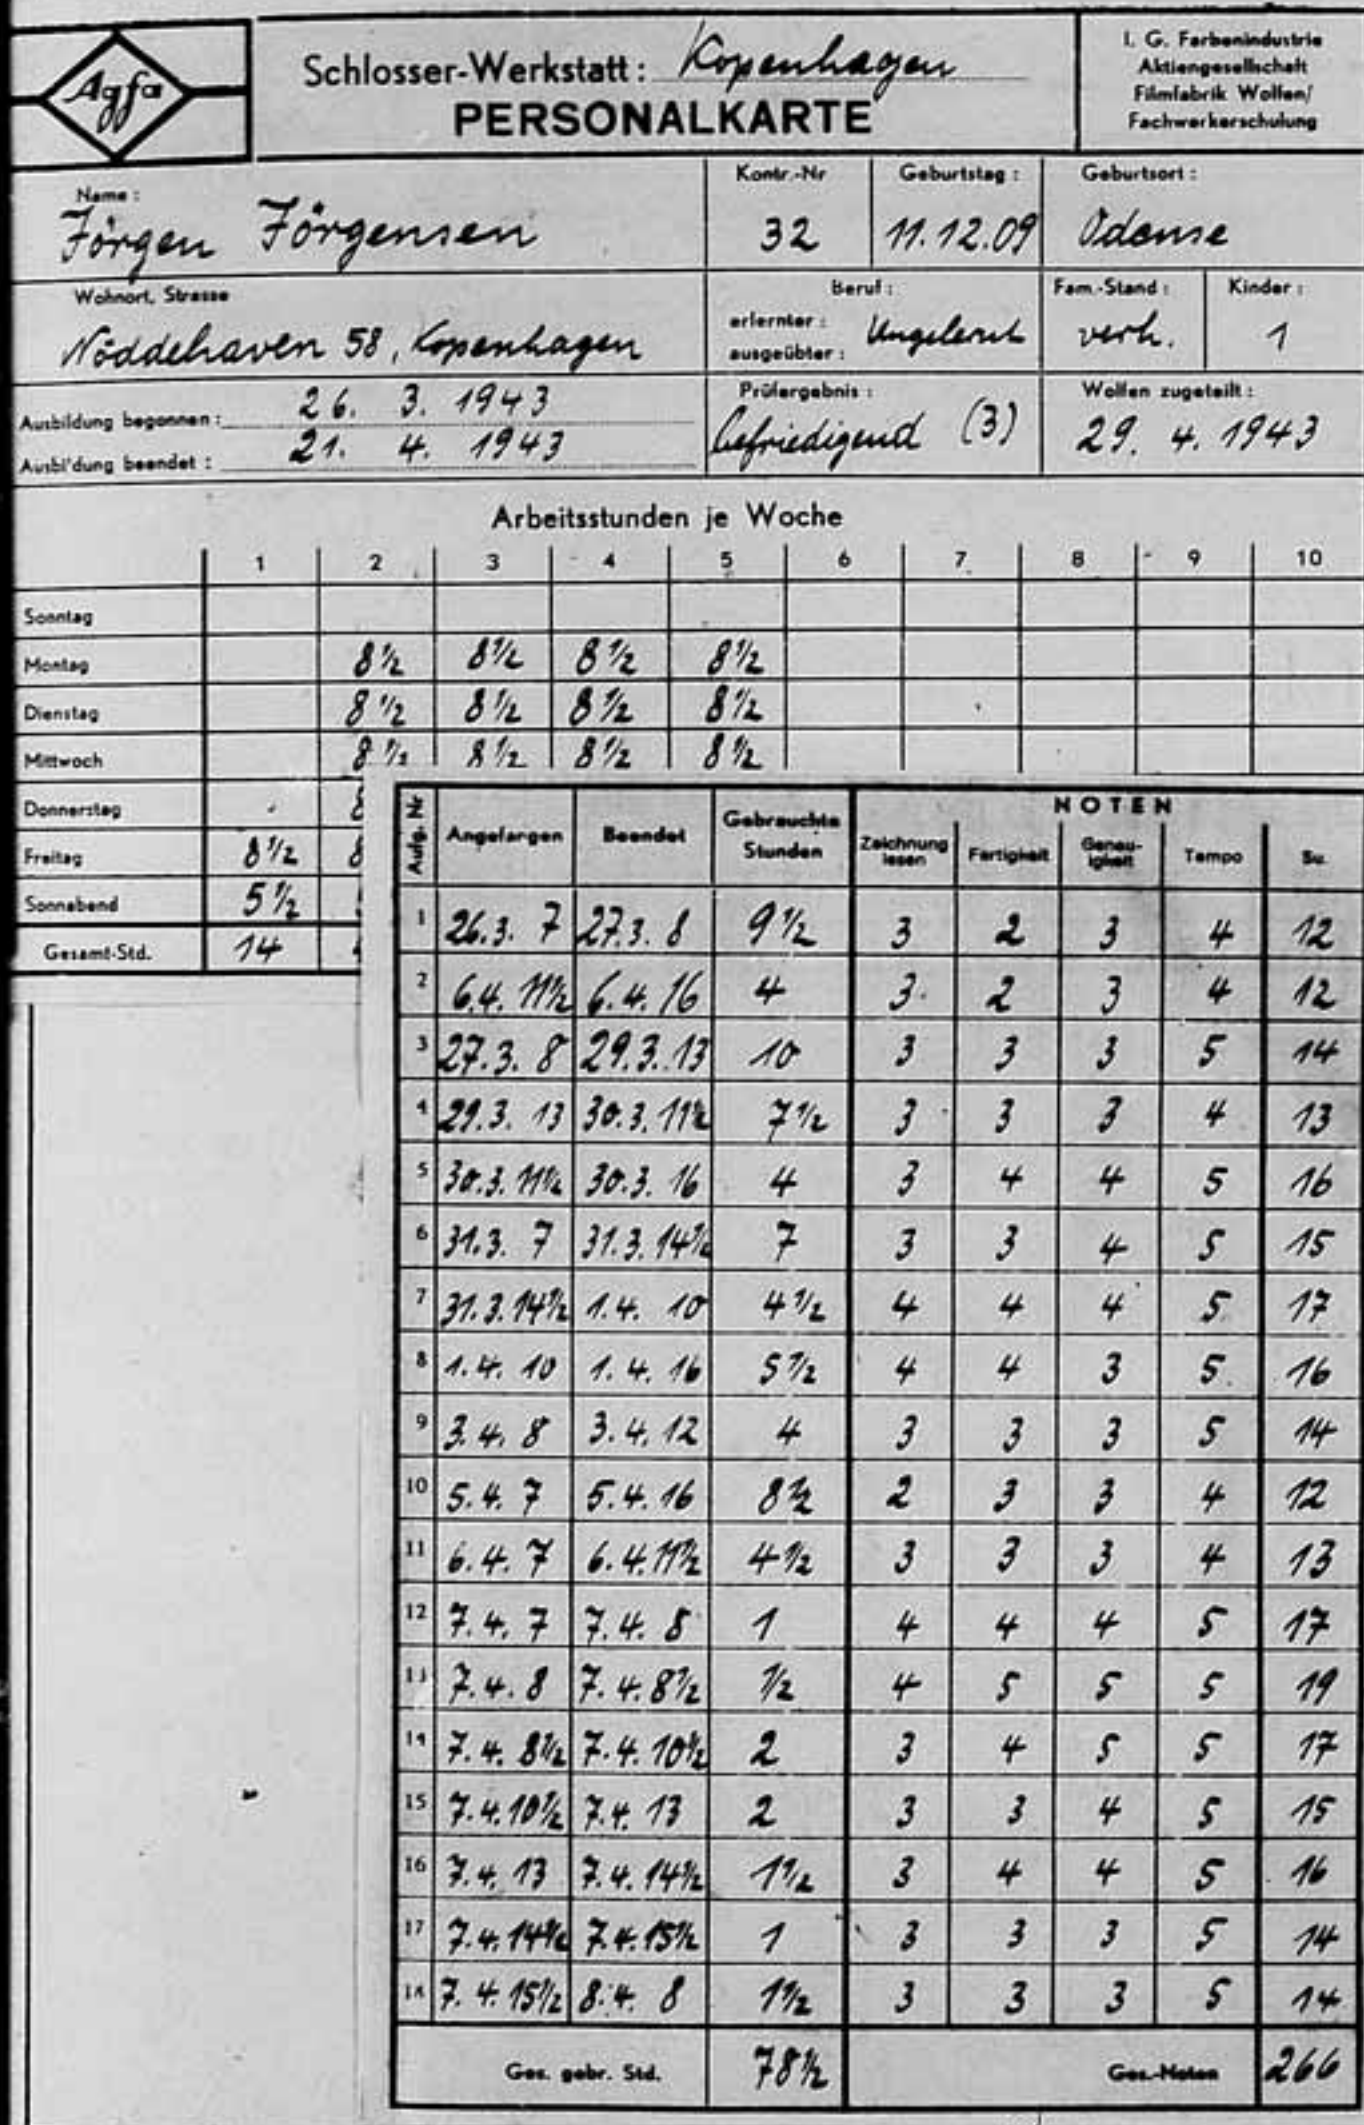 Agfa
Schlosser-Werkstatt: Kopenhagen
PERSONALKARTE
I. G. Farbenindustrie
Aktiengesellschaft
Filmfabrik Wolfen/
Fachwerkerschulung
Name: Kontr.-Nr Geburtstag: Geburtsort:
Jörgen Jörgensen 32 11.12.09 Odense
Wohnort, Strasse Beruf: Fam.-Stand: Kinder:
Nöddehaven 58, Kopenhagen erlernter: ausgeübter: Ungelernt verh. 1
Ausbildung begonnen: 26. 3. 1943 Prüfergebnis: Wolfen zugeteilt:
Ausbildung beendet: 21. 4. 1943 befriedigend (3) 29. 4. 1943
Arbeitsstunden je Woche
1 2 3 4 5 6 7 8 9 10
Sonntag
Montag 8½ 8½ 8½ 8½
Dienstag 8½ 8½ 8½ 8½
Mittwoch 8½ 8½ 8½ 8½
Donnerstag
Freitag 8½
Sonnabend 5½
Gesamt-Std. 14
Aufg. Nr Angefangen Beendet Gebrauchte Stunden NOTEN
Zeichnung lesen Fertigkeit Genauigkeit Tempo Su.
1 26.3. 7 27.3. 8 9½ 3 2 3 4 12
2 6.4. 11½ 6.4. 16 4 3 2 3 4 12
3 27.3. 8 29.3. 13 10 3 3 3 5 14
4 29.3. 13 30.3. 11½ 7½ 3 3 3 4 13
5 30.3. 11½ 30.3. 16 4 3 4 4 5 16
6 31.3. 7 31.3. 14½ 7 3 3 4 5 15
7 31.3. 14½ 1.4. 10 4½ 4 4 4 5 17
8 1.4. 10 1.4. 16 5½ 4 4 3 5 16
9 3.4. 8 3.4. 12 4 3 3 3 5 14
10 5.4. 7 5.4. 16 8½ 2 3 3 4 12
11 6.4. 7 6.4. 11½ 4½ 3 3 3 4 13
12 7.4. 7 7.4. 8 1 4 4 4 5 17
13 7.4. 8 7.4. 8½ ½ 4 5 5 5 19
14 7.4. 8½ 7.4. 10½ 2 3 4 5 5 17
15 7.4. 10½ 7.4. 13 2 3 3 4 5 15
16 7.4. 13 7.4. 14½ 1½ 3 4 4 5 16
17 7.4. 14½ 7.4. 15½ 1 3 3 3 5 14
18 7.4. 15½ 8.4. 8 1½ 3 3 3 5 14
Ges. gebr. Std. 78½ Ges.-Noten 266